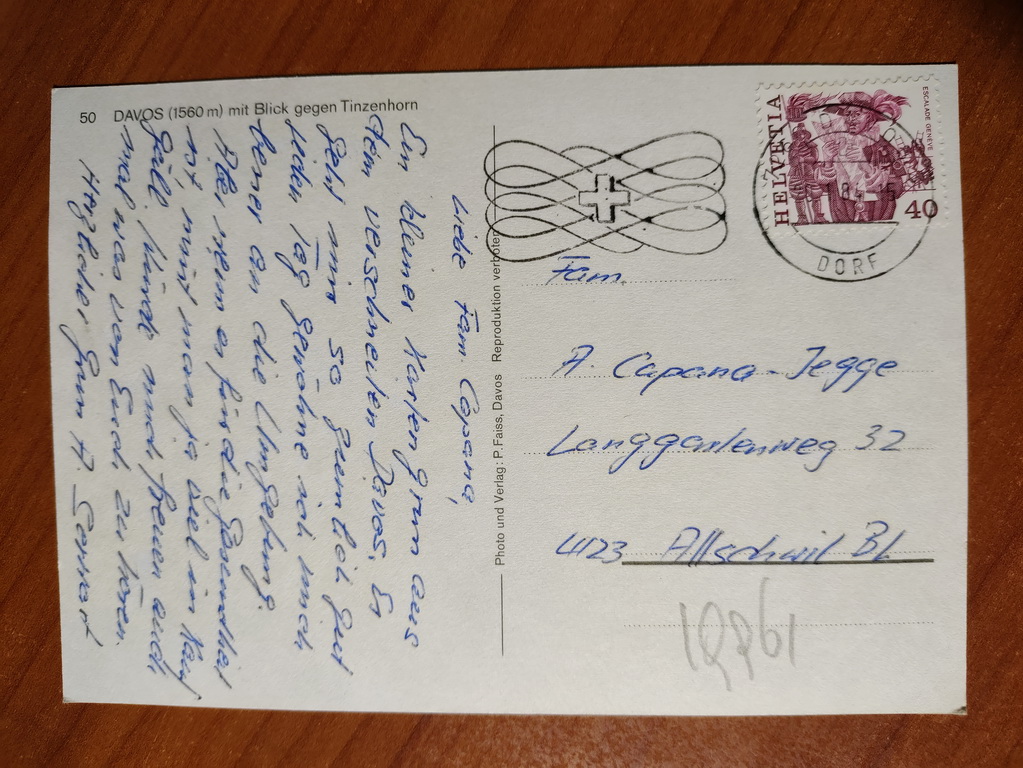 50 DAVOS (1560 m) mit Blick gegen Tinzenhorn
Liebe Fam. Capana,
Ein kleiner Kartengruss aus
dem verschneiten Davos. Es
geht mir so ziemlich gut
jeden Tag gewöhne ich mich
besser an die Umgebung.
Aber wenn es für die Gesundheit
ist, nimmt man ja viel in Kauf
gäll. Würde mich freuen auch
mal was von Euch zu hören.
Herzlicher Gruss A.
Photo und Verlag: P. Faiss, Davos Reproduktion verboten
HELVETIA
ESCALADE GENÈVE
40
DORF
Fam.
A. Capana-Jegge
Langgartenweg 32
4123 Allschwil BL